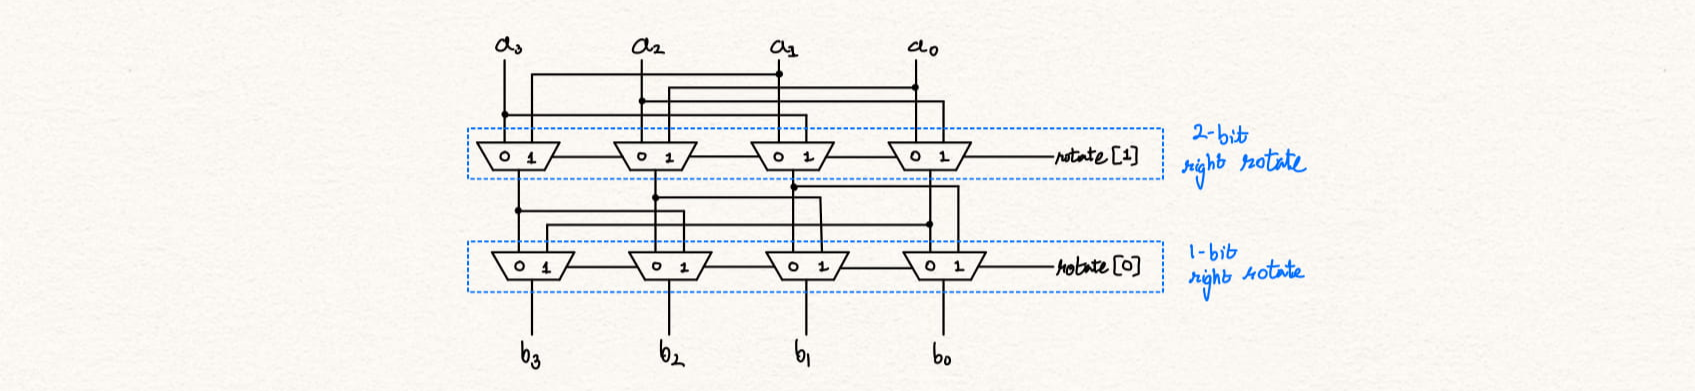 a3 a2 a1 a0
0 1 0 1 0 1 0 1 rotate [1]
2-bit
right rotate
0 1 0 1 0 1 0 1 rotate [0]
1-bit
right rotate
b3 b2 b1 b0